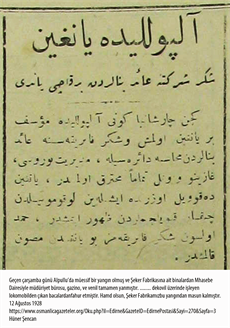 آلپوللیده یانغین
شكر شركتنه عائد بنالردن برقاچی یاندی
كچن چارشانبا كونی آلپوللیده مؤسف
بر یانغین اولمش وشكر فابریقه‌سنه عائد
بنالردن محاسبه دائره‌سیله، مدیریت بوروسی،
غازینو و
تماماً محترق اولمشدر. یانغین
اوزرنده ایشله‌ین لوقوموتیفلردن
چیقان
ظهور ایتمشدر، حمد
اولسون شكر فابریقه‌مز بو یانغیندن مصون
قالمشدر.
Geçen çarşamba günü Alpullu'da müessif bir yangın olmuş ve Şeker Fabrikasına ait binalardan Mhasebe
Dairesiyle müdüriyet bürosu, gazino, ve venil tamamen yanmıştır. ......... dekovil üzerinde işleyen
lokomobilden çıkan bacalardan fahur etmiştir. Hamd olsun, Şeker Fabrikamız bu yangından masun kalmıştır.
12 Ağustos 1928
https://www.osmanlicagazeteler.org/Oku.php?il=Edirne&GazeteID=EdirnePostasi&Sayi=270&Sayfa=3
Hüner Şencan